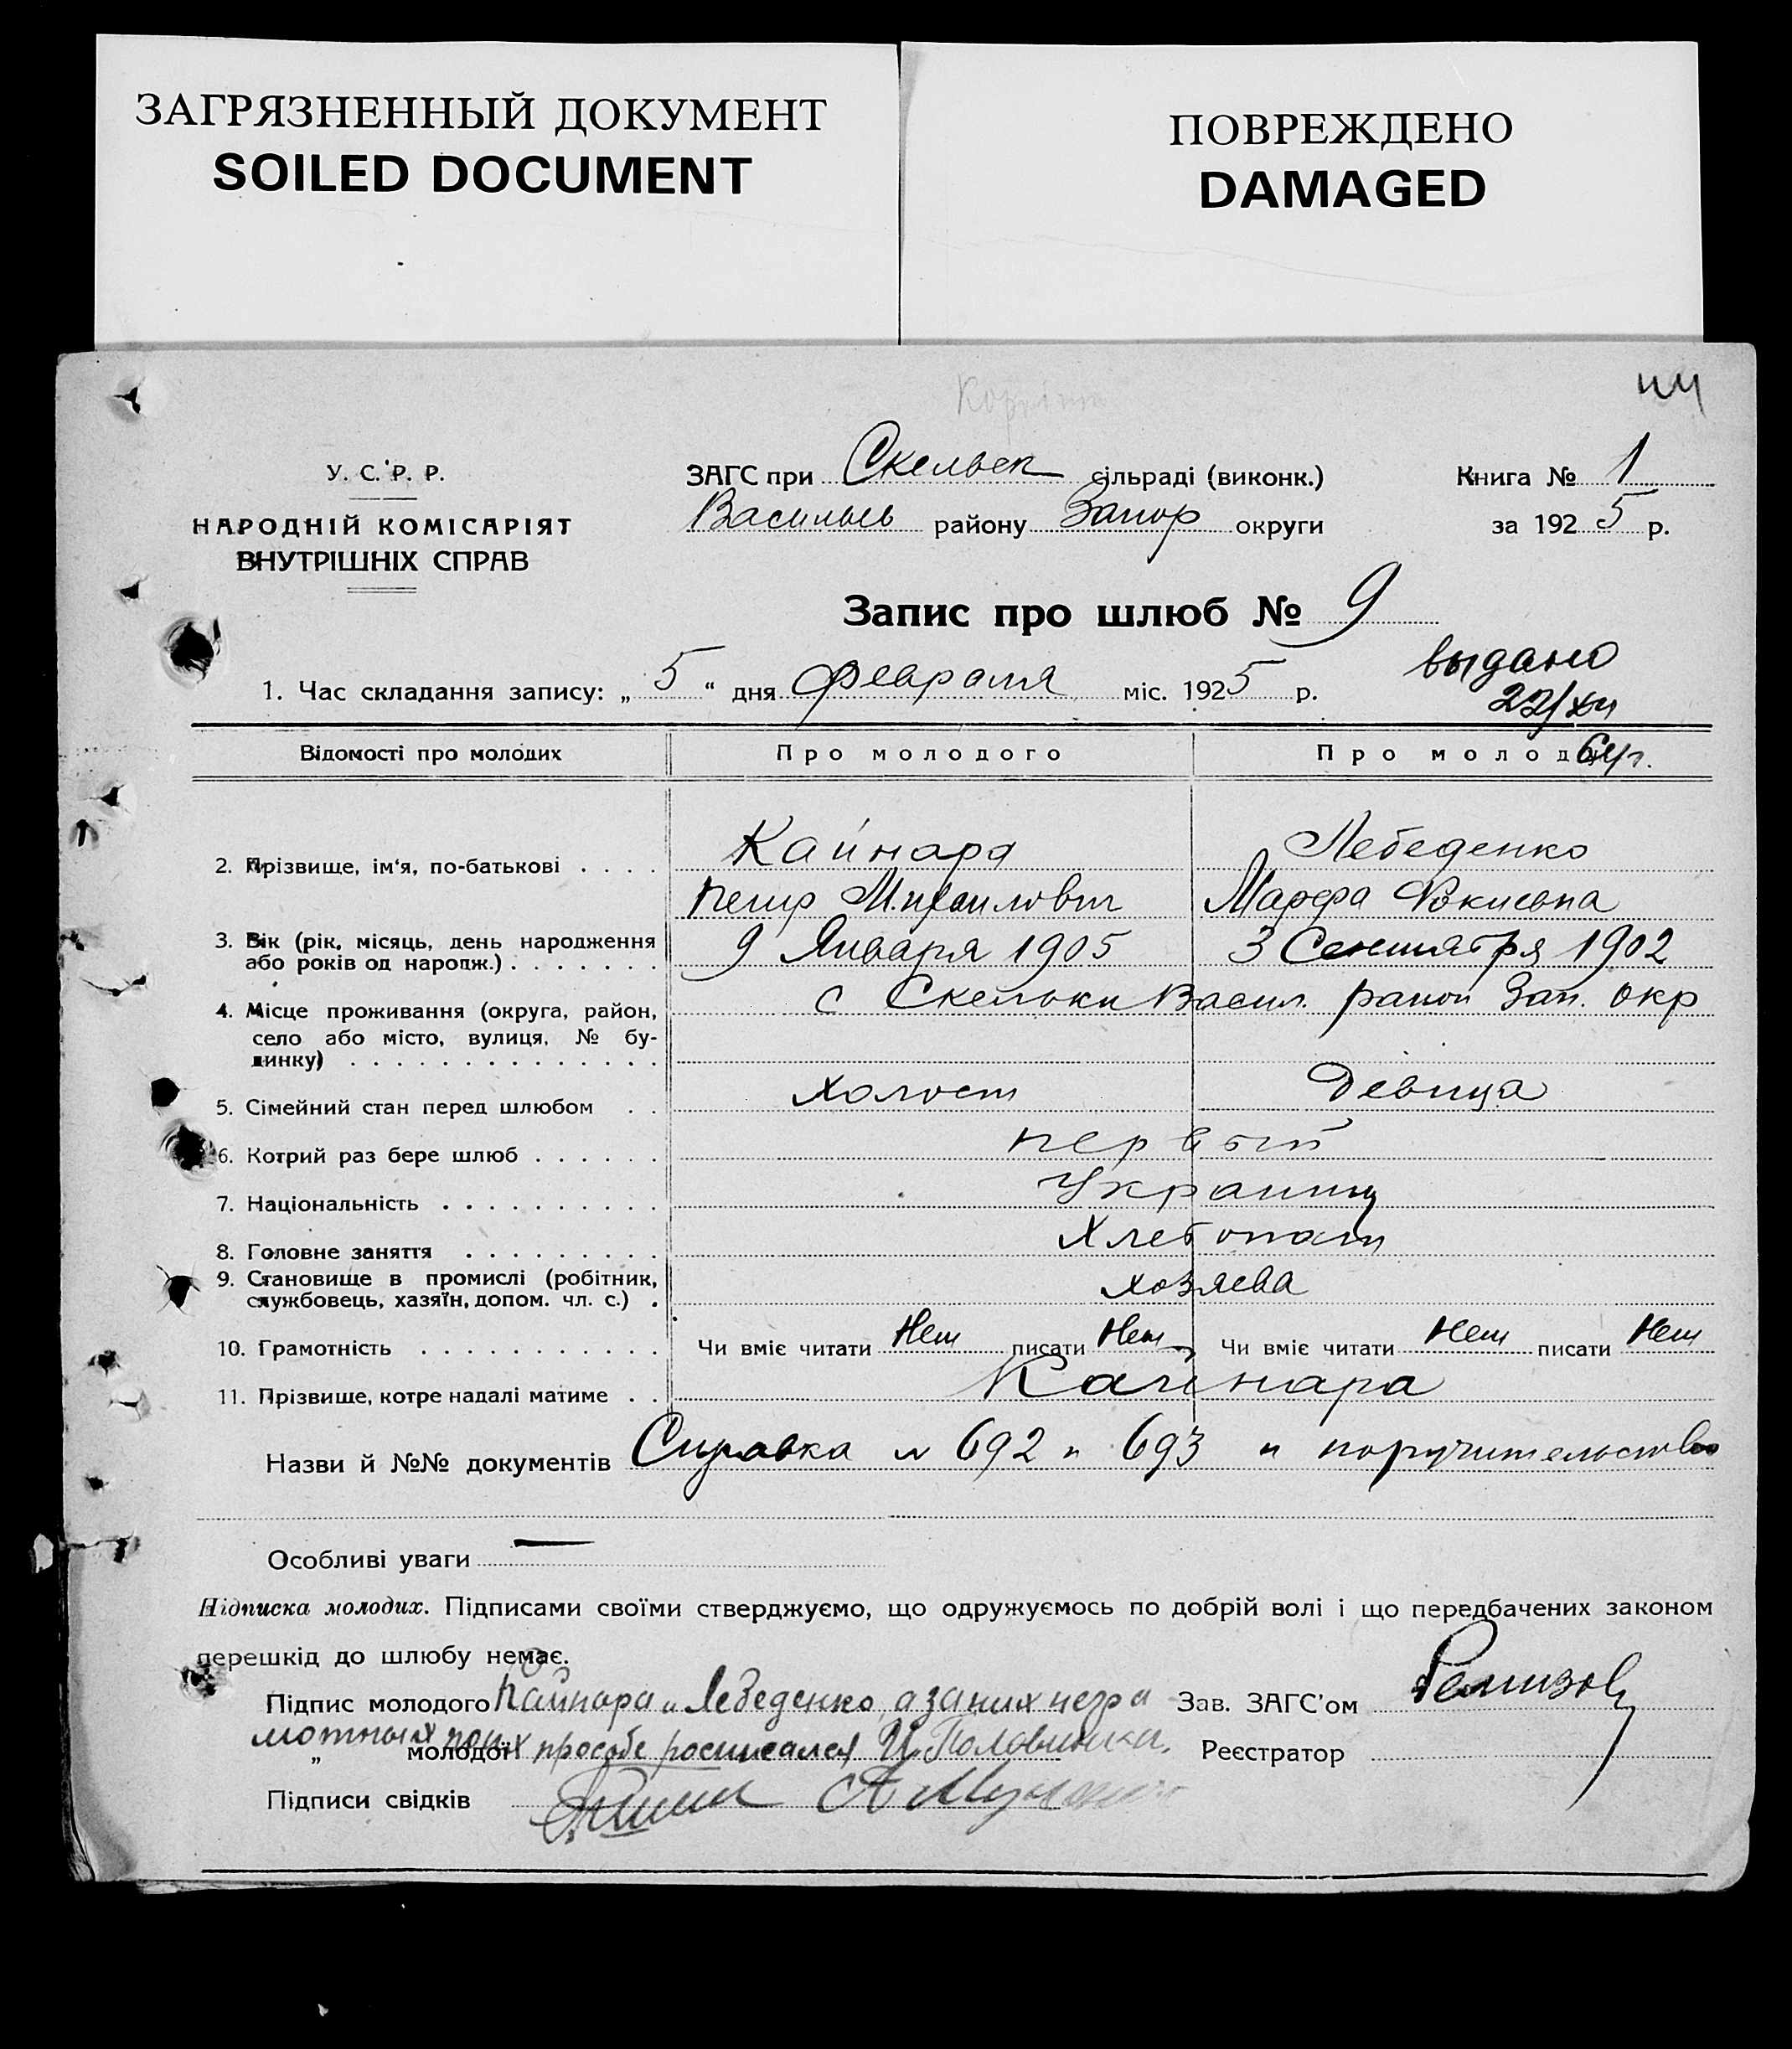 ЗАГРЯЗНЕННЫЙ ДОКУМЕНТ
SOILED DOCUMENT
ПОВРЕЖДЕНО
DAMAGED
У. С. Р. Р.
НАРОДНІЙ КОМІСАРІЯТ
ВНУТРІШНІХ СПРАВ
ЗАГС при Скельек сільраді (виконк.)
Васильев району Запор округи
Книга № 1
за 1925 р.
Запис про шлюб № 9
1. Час складання запису: „ 5 “ дня февраля міс. 1925 р.
выдано
22/XII
64г.
Відомості про молодих Про молодого Про молоду
2. Прізвище, ім‘я, по-батькові . . . . Кайнара Лебеденко
Петр Михаилович Марфа Фокиевна
3. Вік (рік, місяць, день народження
або років од народж.) . . . . . . . 9 Января 1905 3 Сентября 1902
4. Місце проживання (округа, район, с Скельки Васил. район Зап. окр
село або місто, вулиця, № бу-
динку) . . . . . . . . . . . . . .
5. Сімейний стан перед шлюбом . . холост Девица
6. Котрий раз бере шлюб . . . . . . первый
7. Національність . . . . . . . . . . Украинц
8. Головне заняття . . . . . . . . . Хлебопаш
9. Становище в промислі (робітник,
службовець, хазяїн, допом. чл. с.) . хозяева
10. Грамотність . . . . . . . . . . . Чи вміє читати Нет писати Нет Чи вміє читати Нет писати Нет
11. Прізвище, котре надалі матиме . . Кайнара
Назви й №№ документів Справка № 692 и 693 и поручительство
Особливі уваги —
Підписка молодих. Підписами своїми стверджуємо, що одружуємось по добрій волі і що передбачених законом
перешкід до шлюбу немає.
Підпис молодого Кайнара и Лебеденко а за них негра
мотных по их прозбе росписался Половинка.
„ молодої
Підписи свідків
Зав. ЗАГС’ом Ремизов
Реєстратор